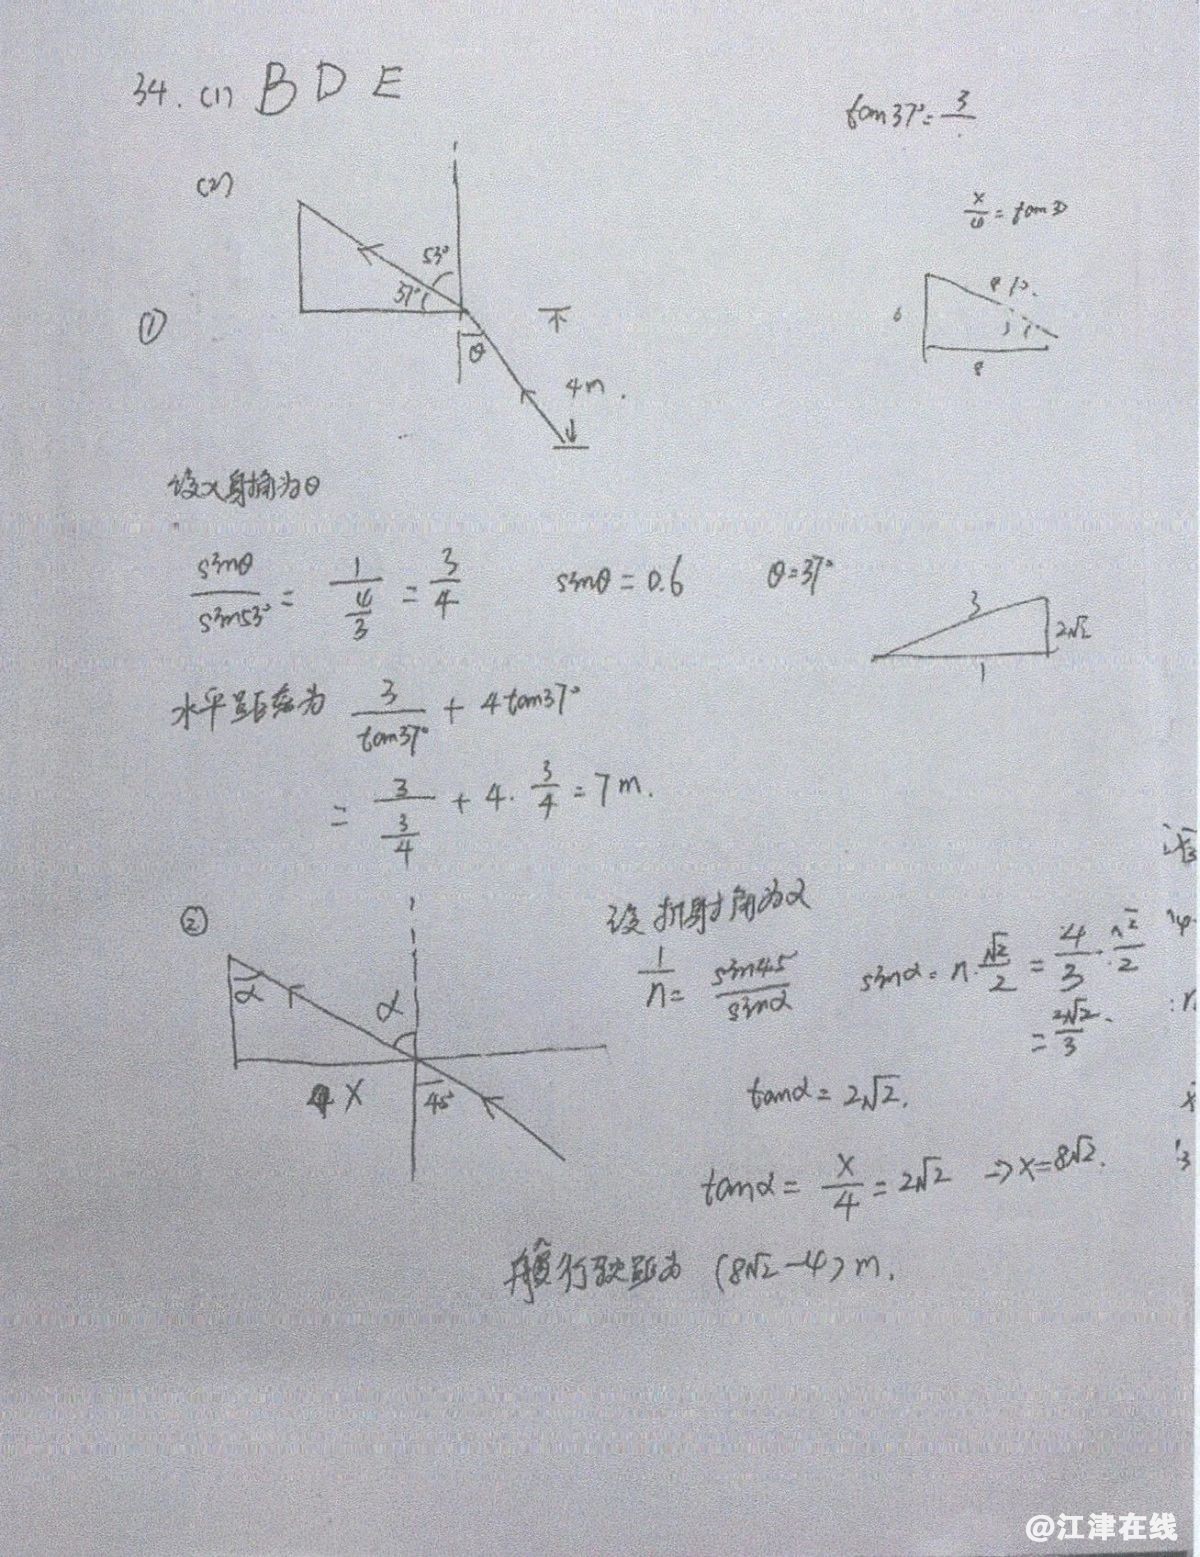 34. (1) B D E
tan37°= 3
(2)
x/4 = tan3
53°
37°
①
θ
不
4m.
6
8
设入射角为θ
sinθ/sin53° = 1/(4/3) = 3/4 sinθ = 0.6 θ=37°
3
2√2
1
水平距离为 3/tan37° + 4tan37°
= 3/(3/4) + 4·3/4 = 7m.
②
设折射角为α
1/n = sin45/sinα sinα = n·√2/2 = 4/3·√2/2
= 2√2/3.
α
α
45°
X
tanα = 2√2.
tanα = x/4 = 2√2 ⇒ x=8√2.
行驶距为 (8√2-4)m.
@江津在线